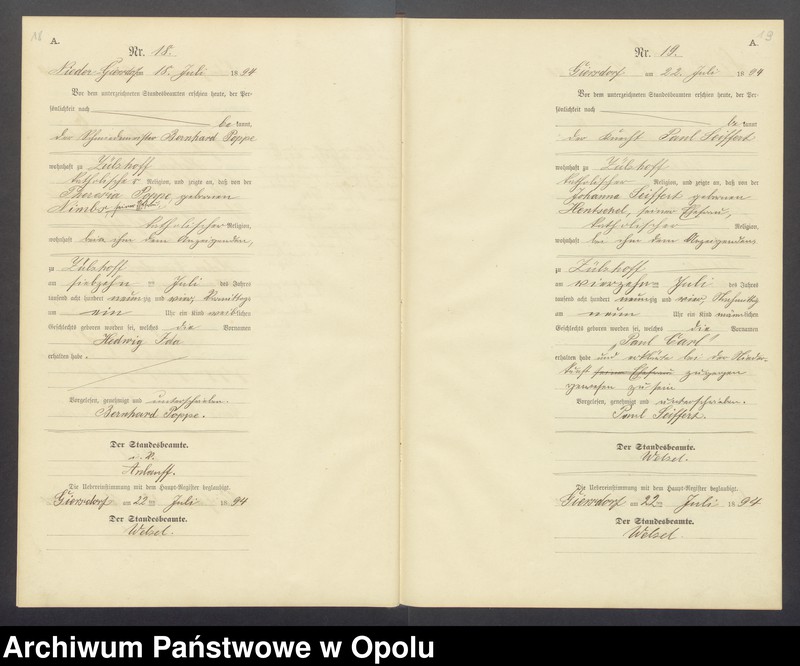 18
A.
Nr. 18.
Nieder 18. Juli 1894
Vor dem unterzeichneten Standesbeamten erschien heute, der Per-
sönlichkeit nach
be kannt,
der Schmiedemeister Bernhard Poppe
wohnhaft zu Zülshoff
katholischer Religion, und zeigte an, daß von der
Theresia Poppe gebornen
seiner Ehefrau
katholischer Religion,
wohnhaft bei ihm dem Anzeigenden,
zu Zülshoff
am siebzehn ten Juli des Jahres
tausend acht hundert neunzig und vier, Vormittags
um ein Uhr ein Kind weiblichen
Geschlechts geboren worden sei, welches die Vornamen
Hedwig Ida
erhalten habe.
Vorgelesen, genehmigt und unterschrieben.
Bernhard Poppe.
Der Standesbeamte.
i. V.
Die Uebereinstimmung mit dem Haupt-Register beglaubigt.
Giersdorf am 22ten Juli 1894
Der Standesbeamte.
Welzel.
19
A.
Nr. 19.
Giersdorf am 22. Juli 1894
Vor dem unterzeichneten Standesbeamten erschien heute, der Per-
sönlichkeit nach
be kannt
der Knecht Paul Seiffert
wohnhaft zu Zülshoff
katholischer Religion, und zeigte an, daß von der
Johanna Seiffert gebornen
Hentschel, seiner Ehefrau,
katholischer Religion,
wohnhaft bei ihm dem Anzeigenden
zu Zülshoff
am vierzehn ten Juli des Jahres
tausend acht hundert neunzig und vier, Nachmittag
um neun Uhr ein Kind männlichen
Geschlechts geboren worden sei, welches die Vornamen
„Paul Carl“
erhalten habe und erklärte bei der Nieder-
kunft seiner Ehefrau zugegen
gewesen zu sein
Vorgelesen, genehmigt und unterschrieben.
Paul Seiffert.
Der Standesbeamte.
Welzel.
Die Uebereinstimmung mit dem Haupt-Register beglaubigt.
Giersdorf am 22ten Juli 1894
Der Standesbeamte.
Welzel.
Archiwum Państwowe w Opolu